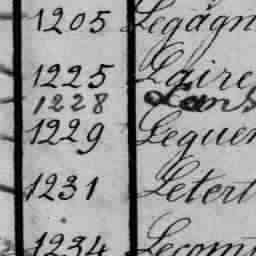 1205 Legagn
1225 Laire
1228 Lans
1229 Leguer
1231 Letert
1234 Lecom